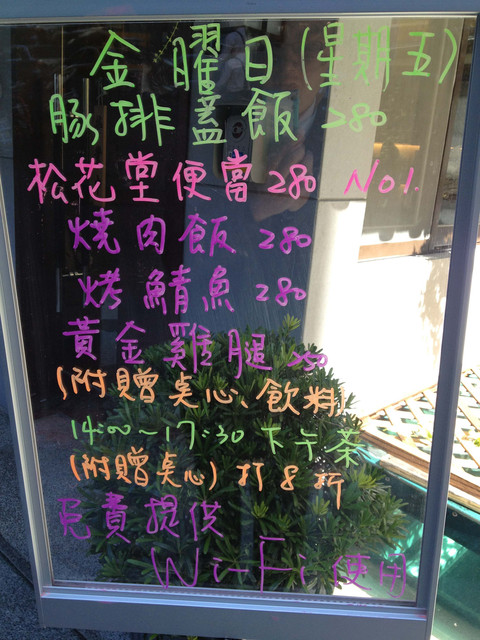 金曜日(星期五)
豚排蓋飯 280
松花堂便當 280 No1.
燒肉飯 280
烤鯖魚 280
黃金雞腿 250
(附贈桌心、飲料)
14:00~17:30 下午茶
(附贈桌心) 打8折
免費提供
Wi-Fi 使用